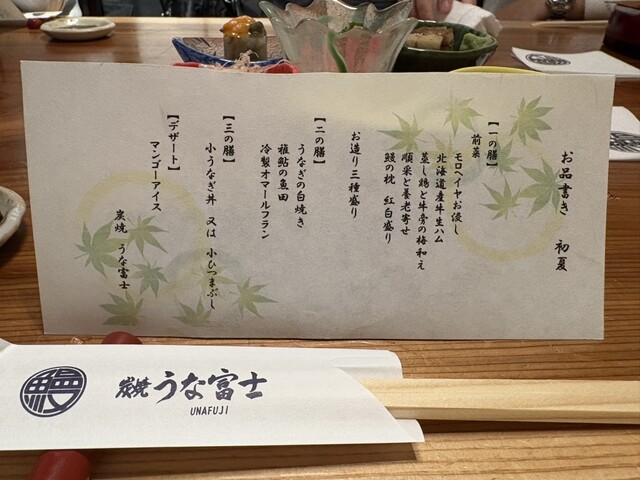 お品書き 初夏
【一の膳】
前菜
モロヘイヤお浸し
北海道産牛生ハム
蒸し鶏と牛蒡の梅和え
順采と養老寄せ
鰻の枕 紅白盛り
お造り三種盛り
【二の膳】
うなぎの白焼き
稚鮎の魚田
冷製オマールフラン
【三の膳】
小うなぎ丼 又は 小ひつまぶし
【デザート】
マンゴーアイス
炭焼 うな富士
鰻
炭焼 うな富士
UNAFUJI